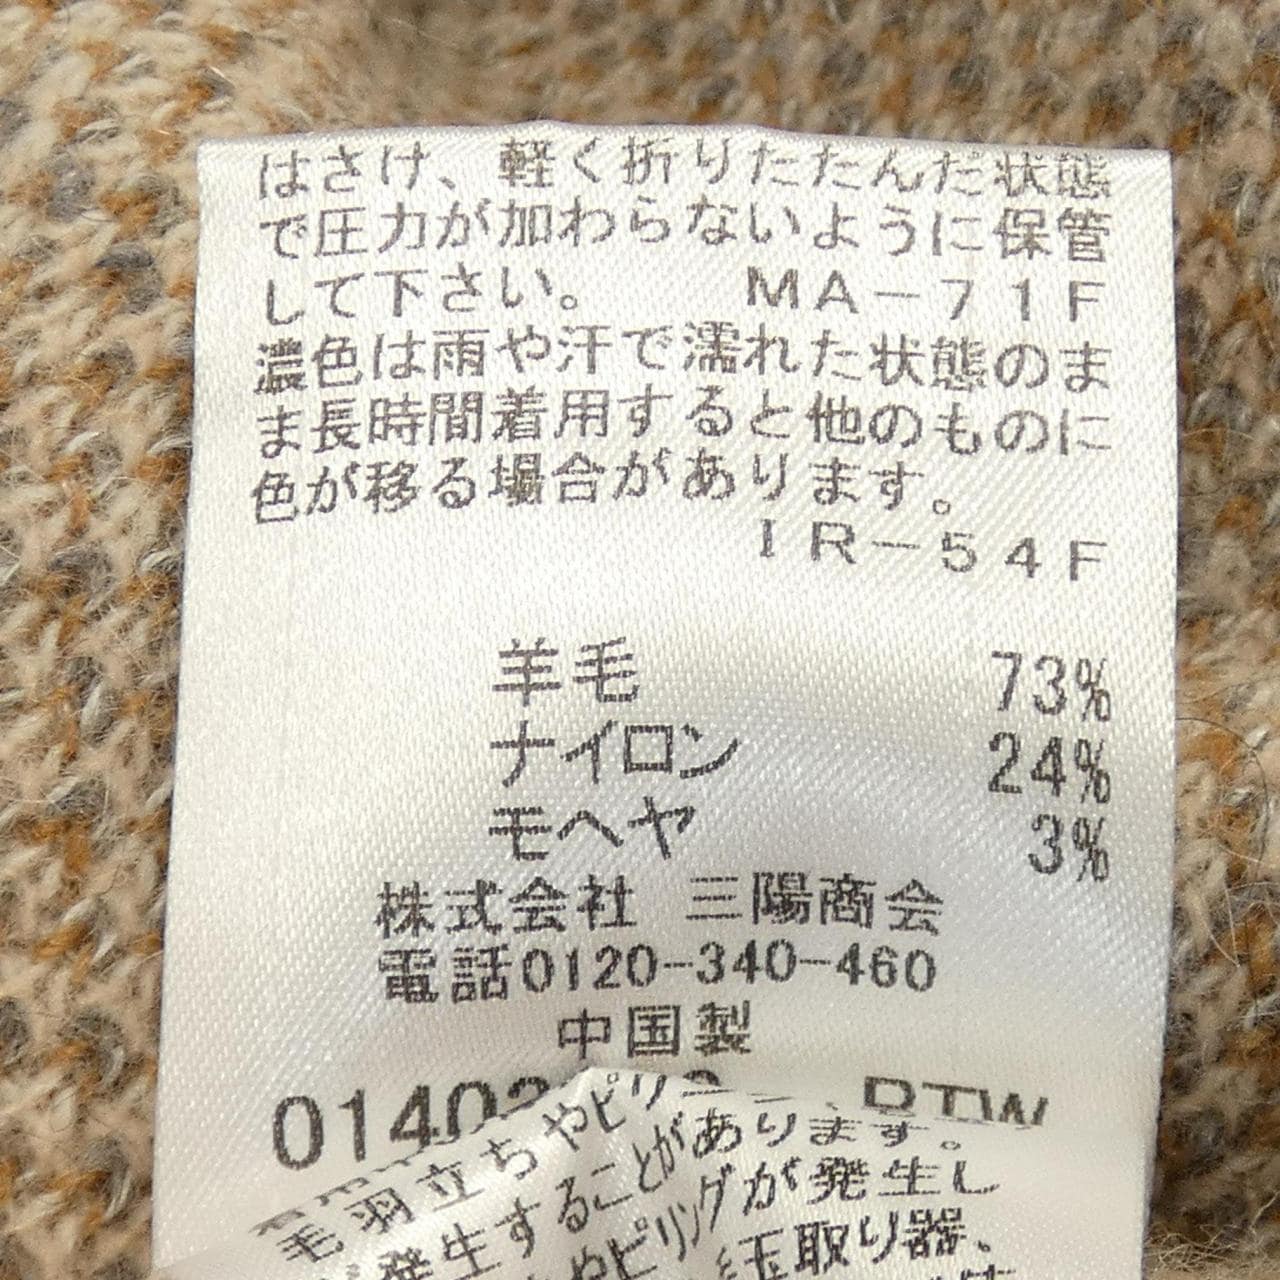 はさけ、軽く折りたたんだ状態
で圧力が加わらないように保管
して下さい。 MA-71F
濃色は雨や汗で濡れた状態のま
ま長時間着用すると他のものに
色が移る場合があります。
IR-54F
羊毛 73%
ナイロン 24%
モヘヤ 3%
株式会社 三陽商会
電話0120-340-460
中国製
RTW
毛羽立ちやピリ
発生することがあります。
やピリングが発生し
玉取り器、